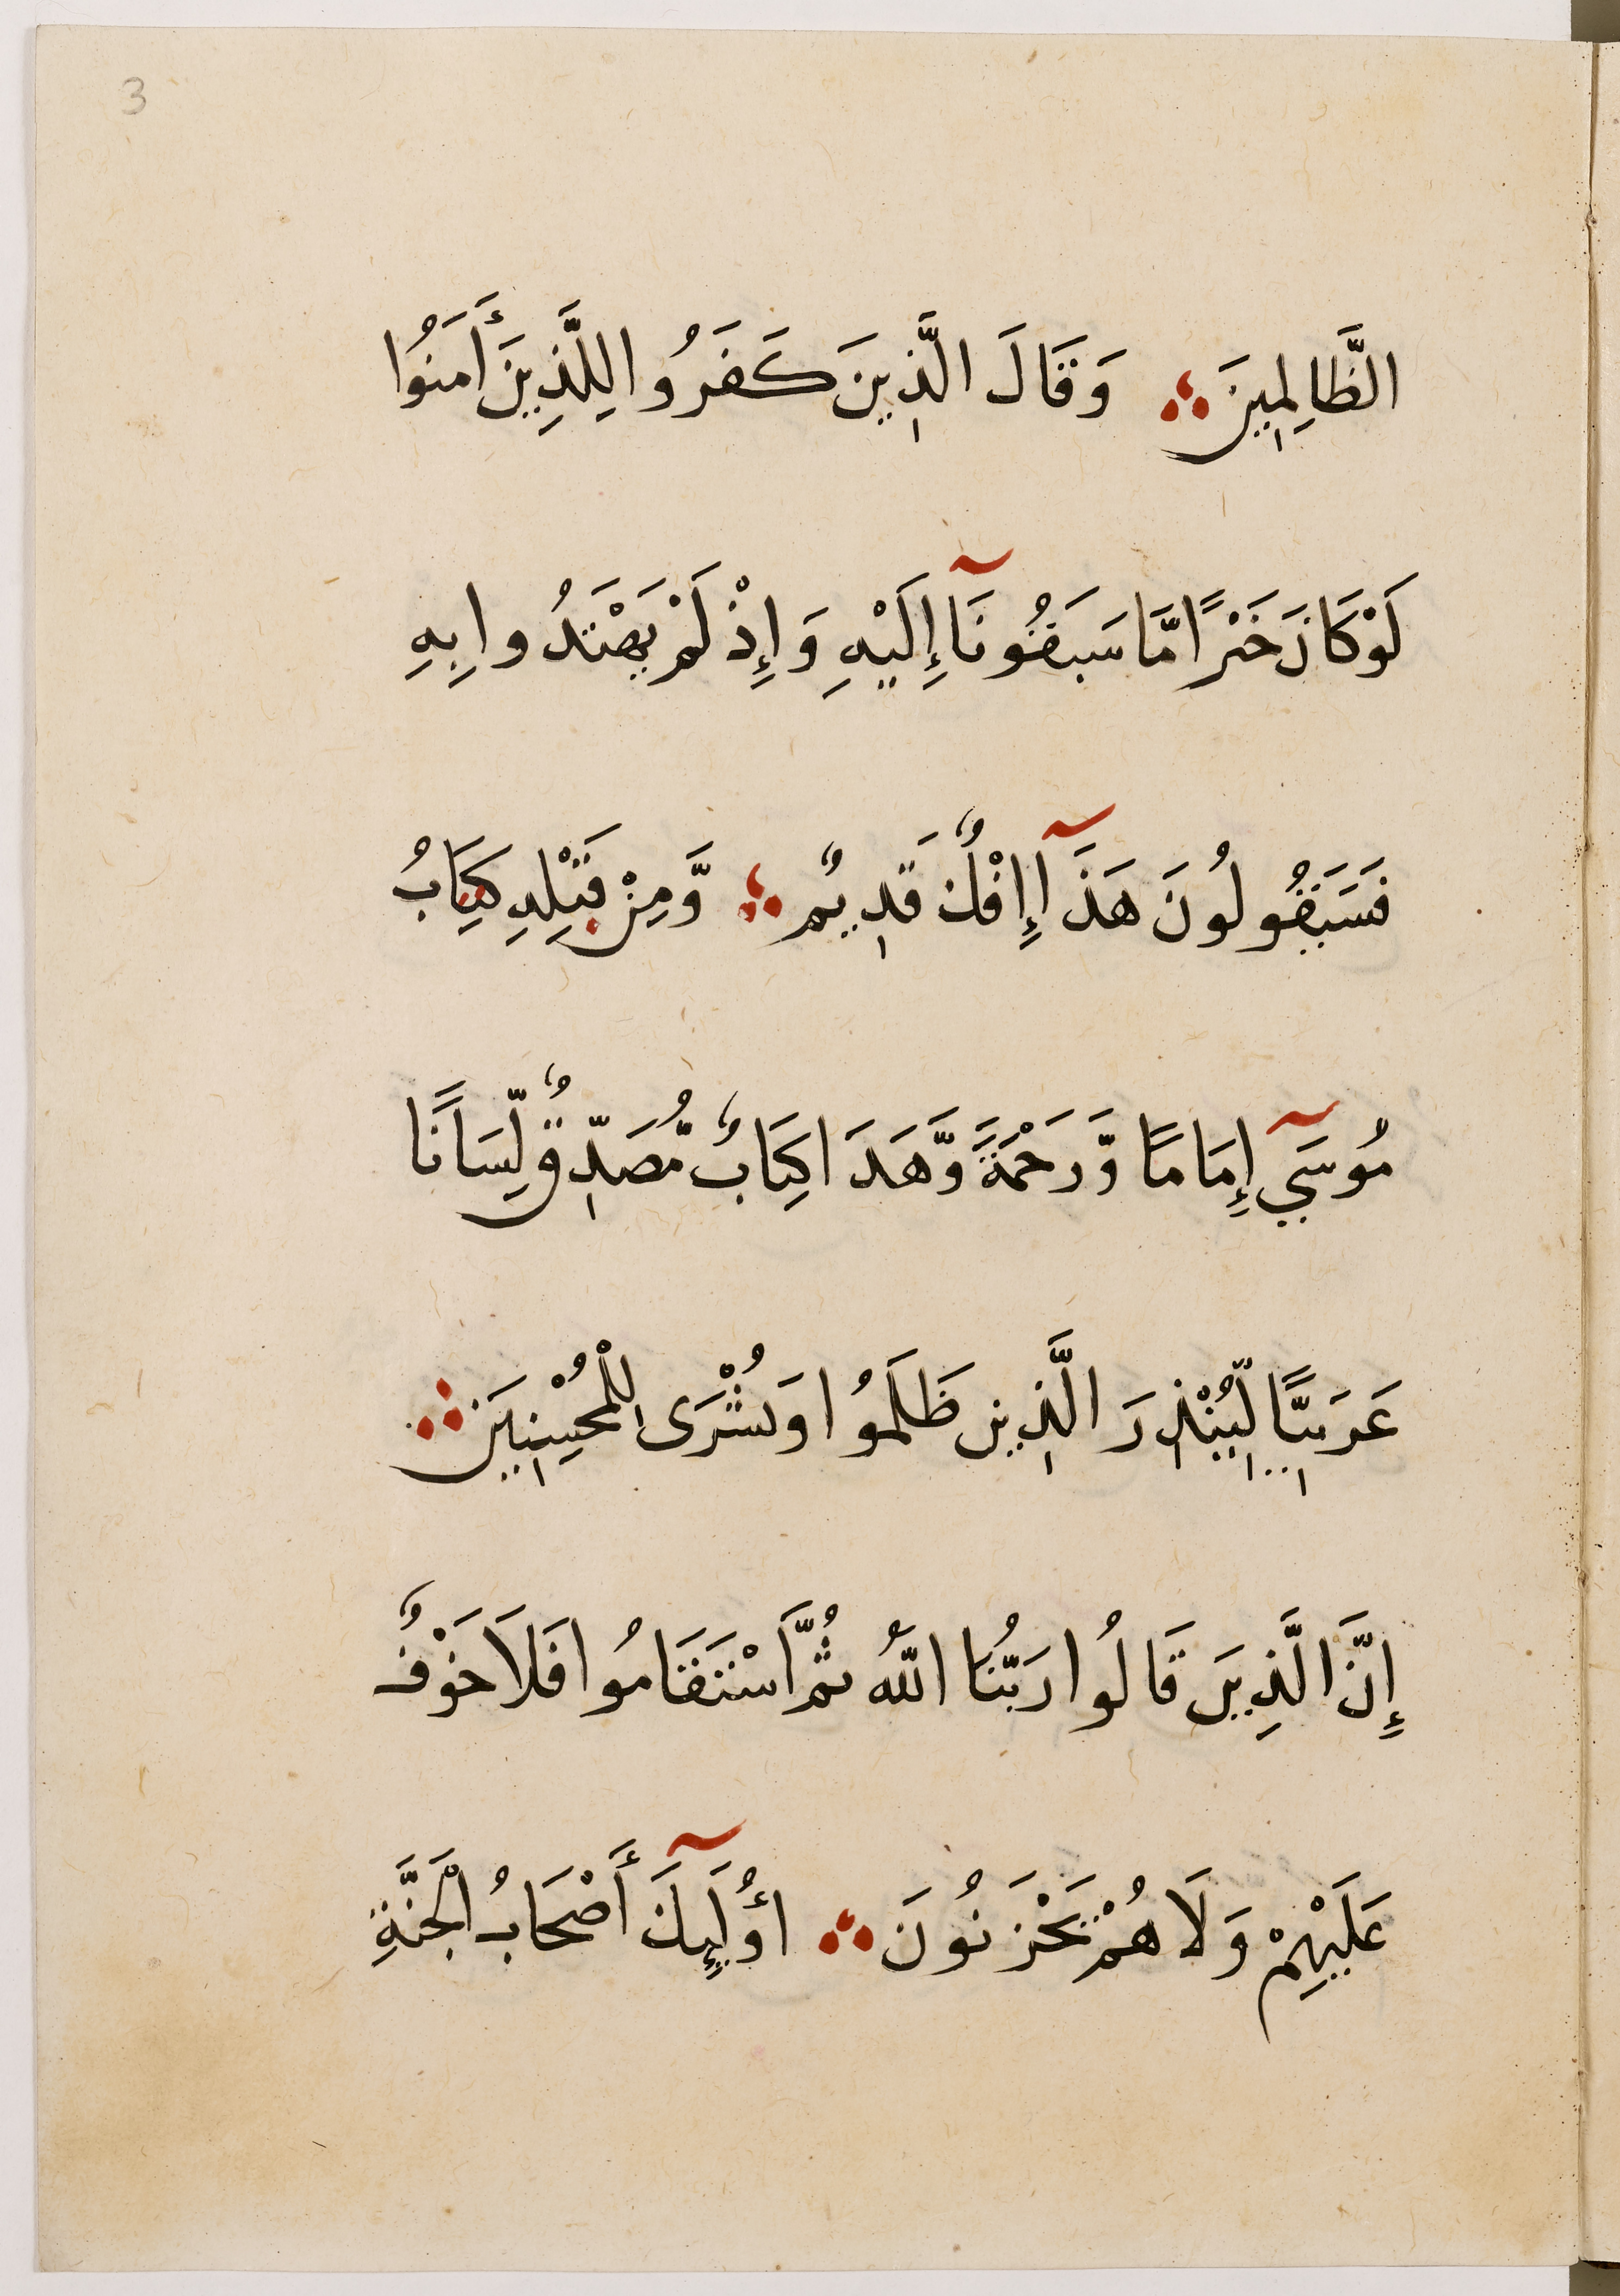 3
الظَّالِمِينَ ۞ وَقَالَ الَّذِينَ كَفَرُوا لِلَّذِينَ أَمَنُوا
لَوْ كَانَ خَيْرًا مَّا سَبَقُونَآ إِلَيْهِ وَإِذْ لَمْ يَهْتَدُوا بِهِ
فَسَيَقُولُونَ هَذَآ إِفْكٌ قَدِيمٌ ۞ وَّمِنْ قَبْلِهِ كِتَابُ
مُوسَىٓ إِمَامًا وَّرَحْمَةً وَّهَذَا كِتَابٌ مُّصَدِّقٌ لِّسَانًا
عَرَبِيًّا لِّيُنْذِرَ الَّذِينَ ظَلَمُوا وَبُشْرَى لِلْمُحْسِنِينَ ۞
إِنَّ الَّذِينَ قَالُوا رَبُّنَا اللَّهُ ثُمَّ اسْتَقَامُوا فَلَا خَوْفٌ
عَلَيْهِمْ وَلَا هُمْ يَحْزَنُونَ ۞ أُولَٓئِكَ أَصْحَابُ الْجَنَّةِ